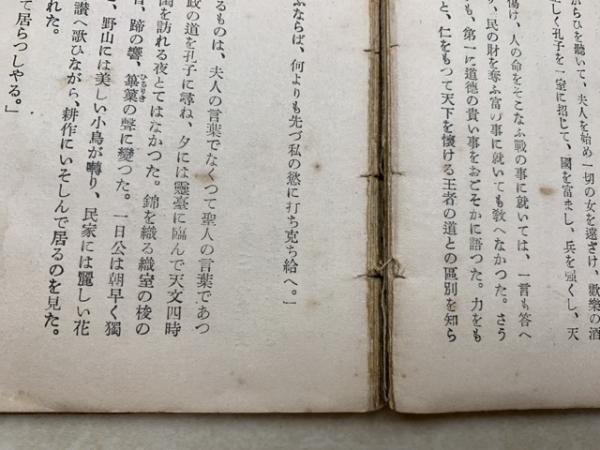 がらひを聴いて、夫人を始め一切の女を遠ざけ、歡樂の酒
しく孔子を一室に招じて、國を富まし、兵を强くし、天
傷け、人の命をそこなふ戰の事に就いては、一言も答へ
、民の財を奪ふ富の事に就いても敎へなかつた。さう
も、第一に道德の貴い事をおごそかに語つた。力をも
と、仁をもつて天下を懷ける王者の道との區別を知ら
ふならば、何よりも先づ私の慾に打ち克ち給へ。」
るものは、夫人の言葉でなくつて聖人の言葉であつ
政の道を孔子に尋ね、夕には靈臺に臨んで天文四時
閨を訪れる夜とてはなかつた。錦を織る織室の梭の
、蹄の響、篳篥の聲に變つた。一日公は朝早く獨
ひちりき
、野山には美しい小鳥が囀り、民家には麗しい花
讃へ歌ひながら、耕作にいそしんで居るのを見た。
れた。
て居らつしやる。」